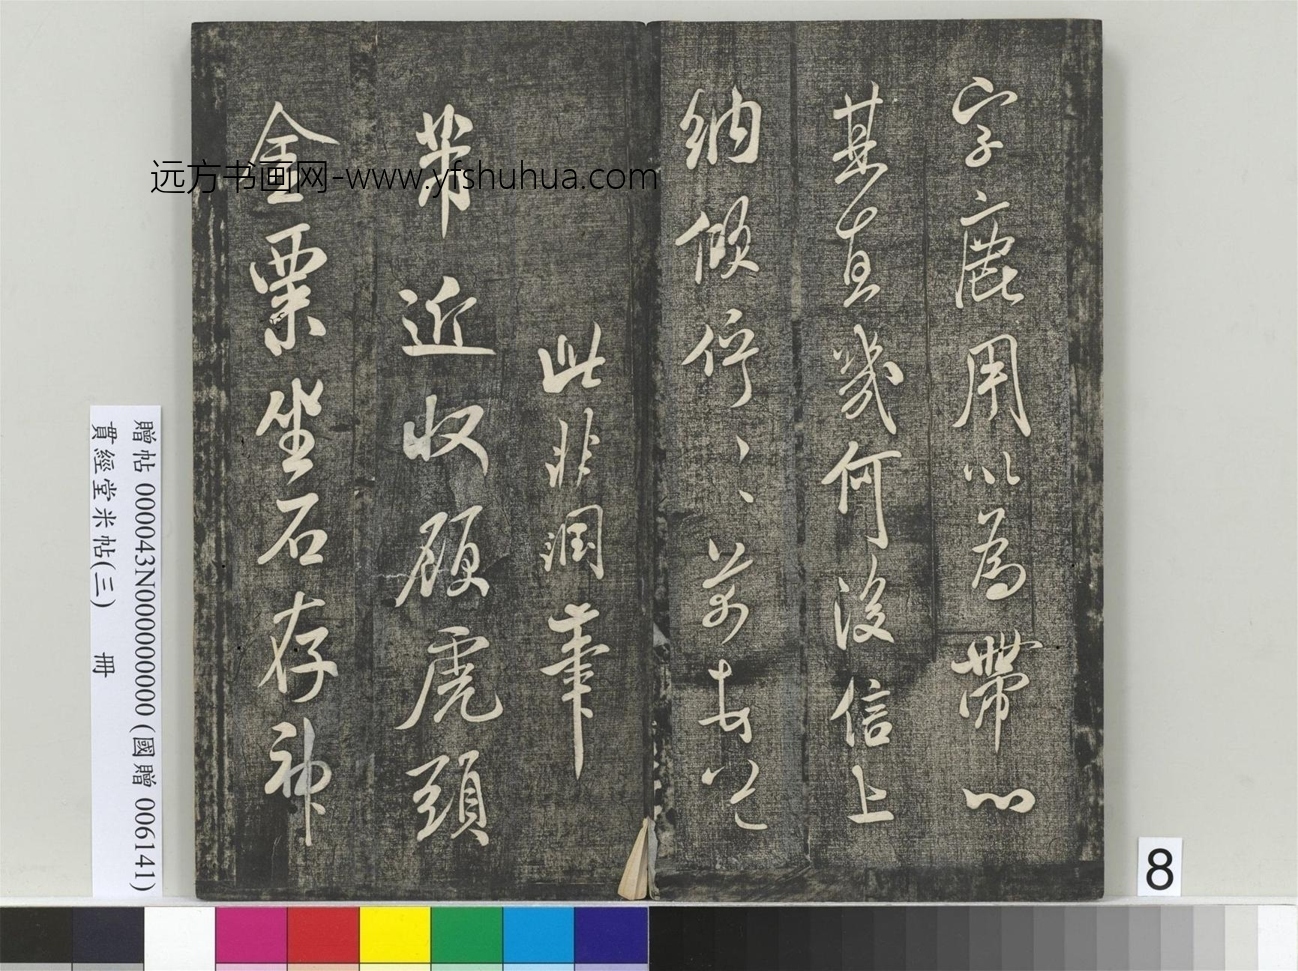 字鹿用以為帶以
其直幾何後信上
納傾佇、、芾皇恐
此非潤筆
芾近收顧虎頭
金粟坐石存神
远方书画网-www.yfshuhua.com
贈帖 000043N000000000 (國贈 006141)
貫經堂米帖(三) 冊
8